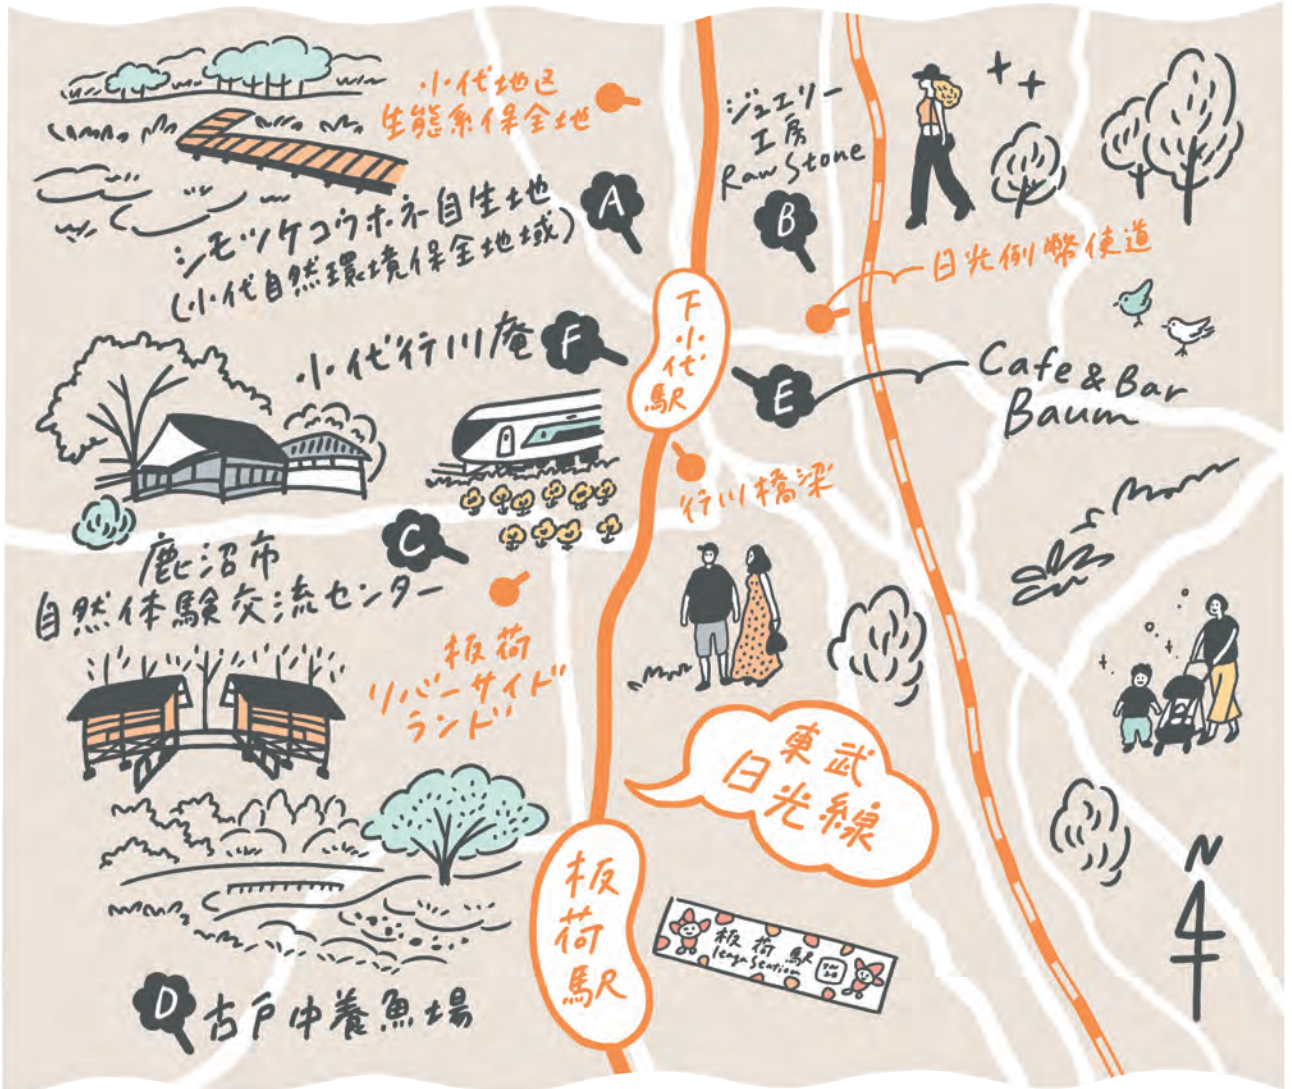 小代地区
生態系保全地
ジュエリー
工房
Raw Stone
A
シモツケコウホネ自生地
(小代自然環境保全地域)
B
日光例幣使道
下小代駅
小代行川庵
F
E
Cafe & Bar
Baum
行川橋梁
C
鹿沼市
自然体験交流センター
板荷
リバーサイド
ランド
東武
日光線
板荷駅
板荷駅
Itaga Station
N
D
古戸中養魚場